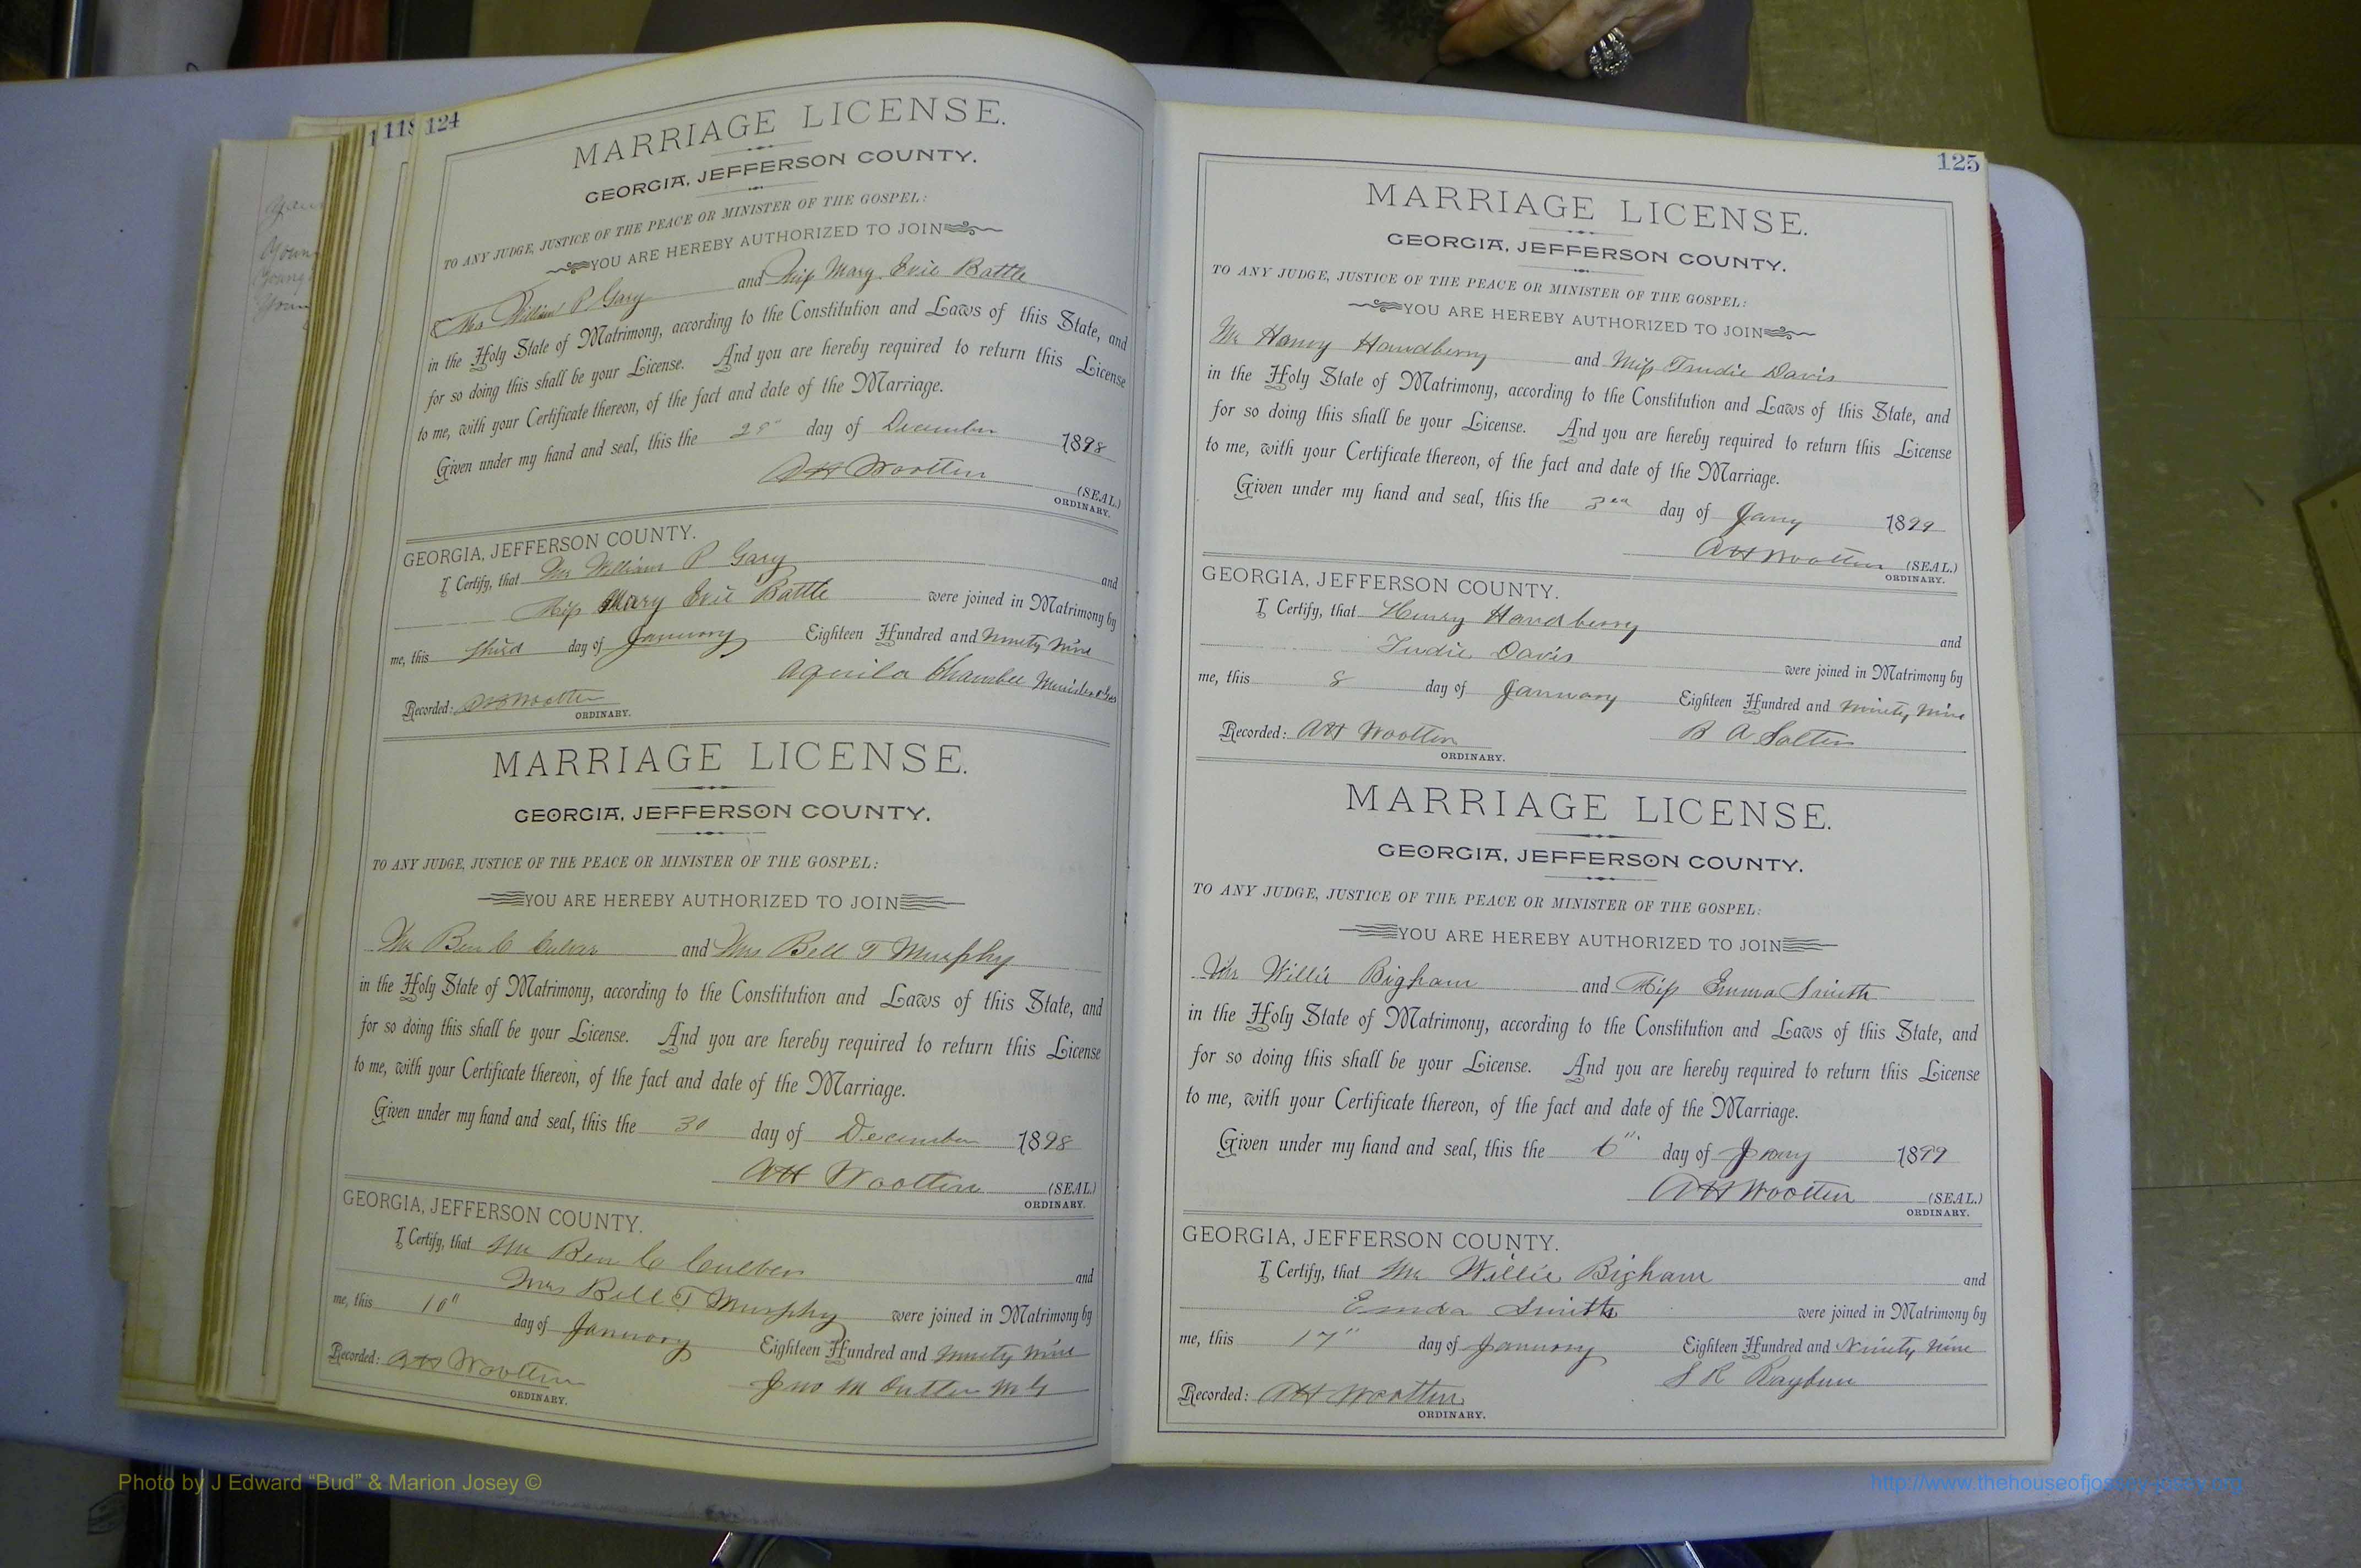 118 124
MARRIAGE LICENSE.
GEORGIA, JEFFERSON COUNTY.
TO ANY JUDGE, JUSTICE OF THE PEACE OR MINISTER OF THE GOSPEL:
YOU ARE HEREBY AUTHORIZED TO JOIN
Mr William P Gary and Miss Mary Evie Battle
in the Holy State of Matrimony, according to the Constitution and Laws of this State, and
for so doing this shall be your License. And you are hereby required to return this License
to me, with your Certificate thereon, of the fact and date of the Marriage.
Given under my hand and seal, this the day of December 1898
AH Wootten (SEAL.)
ORDINARY.
GEORGIA, JEFFERSON COUNTY.
I Certify, that Mr William P Gary and
Miss Mary Evie Battle were joined in Matrimony by
me, this third day of January Eighteen Hundred and Ninety Nine
Aquila Chamblee
Recorded: AH Wootten
ORDINARY.
MARRIAGE LICENSE.
GEORGIA, JEFFERSON COUNTY.
TO ANY JUDGE, JUSTICE OF THE PEACE OR MINISTER OF THE GOSPEL:
YOU ARE HEREBY AUTHORIZED TO JOIN
Mr Ben C and Mrs Bell T Murphy
in the Holy State of Matrimony, according to the Constitution and Laws of this State, and
for so doing this shall be your License. And you are hereby required to return this License
to me, with your Certificate thereon, of the fact and date of the Marriage.
Given under my hand and seal, this the 30 day of December 1898
AH Wootten (SEAL.)
ORDINARY.
GEORGIA, JEFFERSON COUNTY.
I Certify, that Mr Ben C and
Mrs Bell T Murphy were joined in Matrimony by
me, this 10" day of January Eighteen Hundred and Ninety Nine
Jno M M G
Recorded: AH Wootten
ORDINARY.
125
MARRIAGE LICENSE.
GEORGIA, JEFFERSON COUNTY.
TO ANY JUDGE, JUSTICE OF THE PEACE OR MINISTER OF THE GOSPEL:
YOU ARE HEREBY AUTHORIZED TO JOIN
Mr Henry Handberry and Miss Trudie Davis
in the Holy State of Matrimony, according to the Constitution and Laws of this State, and
for so doing this shall be your License. And you are hereby required to return this License
to me, with your Certificate thereon, of the fact and date of the Marriage.
Given under my hand and seal, this the 3rd day of Jany 1899
AH Wootten (SEAL.)
ORDINARY.
GEORGIA, JEFFERSON COUNTY.
I Certify, that Henry Handberry and
Tudie Davis were joined in Matrimony by
me, this 8 day of January Eighteen Hundred and Ninety Nine
B A Salter
Recorded: AH Wootten
ORDINARY.
MARRIAGE LICENSE.
GEORGIA, JEFFERSON COUNTY.
TO ANY JUDGE, JUSTICE OF THE PEACE OR MINISTER OF THE GOSPEL:
YOU ARE HEREBY AUTHORIZED TO JOIN
Mr Willie Bigham and Miss Emma Smith
in the Holy State of Matrimony, according to the Constitution and Laws of this State, and
for so doing this shall be your License. And you are hereby required to return this License
to me, with your Certificate thereon, of the fact and date of the Marriage.
Given under my hand and seal, this the 6" day of Jany 1899
AH Wootten (SEAL.)
ORDINARY.
GEORGIA, JEFFERSON COUNTY.
I Certify, that Mr Willie Bigham and
Emma Smith were joined in Matrimony by
me, this 17" day of January Eighteen Hundred and Ninety Nine
S R Rayburn
Recorded: AH Wootten
ORDINARY.
Photo by J Edward “Bud” & Marion Josey ©